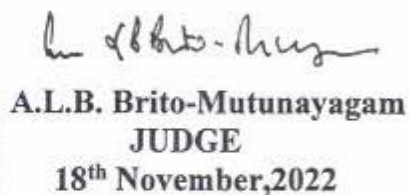 A.L.B. Brito-Mutunayagam
JUDGE
18th November,2022